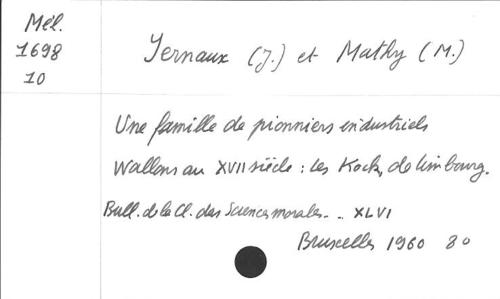 Mél.
1698
10
Yernaux (J.) et Mathy (M.)
Une famille de pionniers industriels
Wallons au XVII siècle : les Kock, de limbourg.
Bull. de la Cl. des Sciences morales - .. XLVI
Bruxelles 1960 80